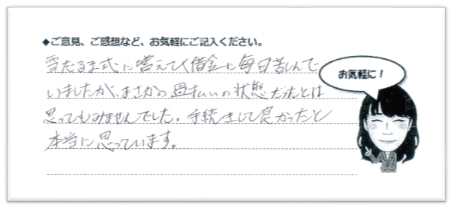 ◆ご意見、ご感想など、お気軽にご記入ください。
雪だるま式に増えてく借金に毎日苦しんで
いましたが、まさかの過払いの状態だったとは
思ってもみませんでした。手続きして良かったと
本当に思っています。
お気軽に！